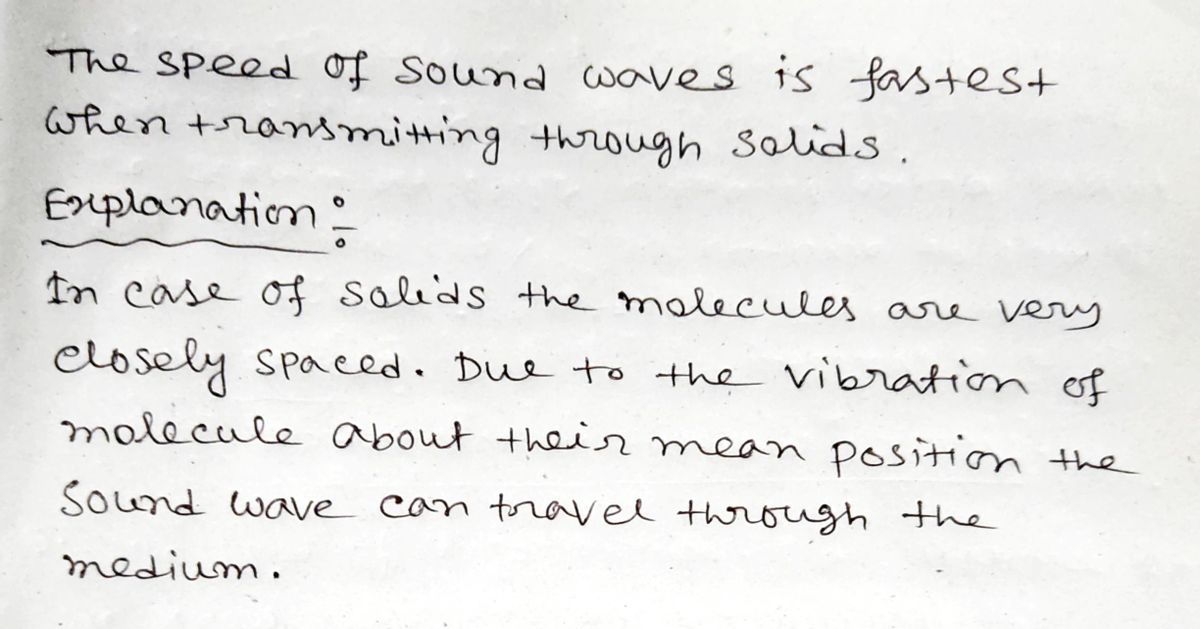 The speed of sound waves is fastest
when transmitting through solids.
Explanation :
In case of solids the molecules are very
closely spaced. Due to the vibration of
molecule about their mean position the
sound wave can travel through the
medium.